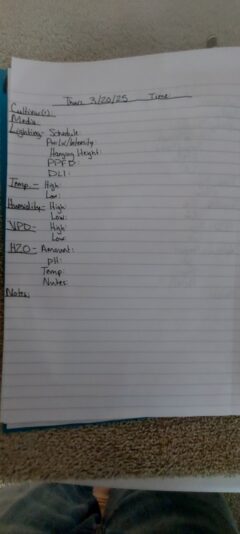 Thurs 3/20/25 Time
Cultivar(s):
Media:
Lighting- Schedule:
Hanging Height:
PPFD:
DLI:
Temp.- High:
Low:
Humidity- High:
Low:
VPD- High:
Low:
H2O- Amount:
pH:
Temp:
Nutes:
Notes: